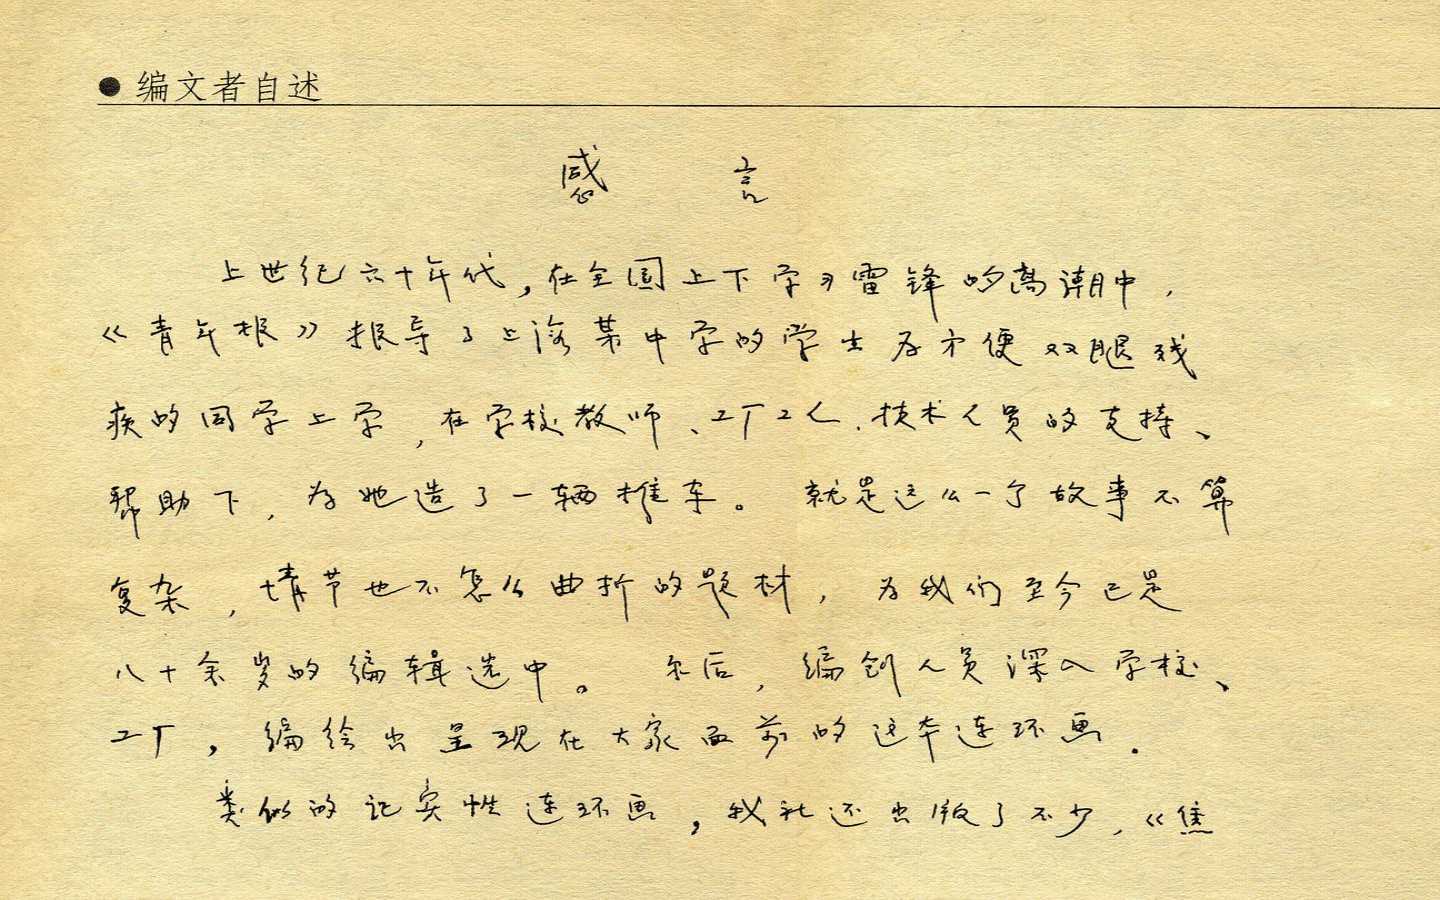 ● 编文者自述
感言
上世纪六十年代，在全国上下学习雷锋的高潮中，
《青年报》报导了上海某中学的学生为方便双腿残
疾的同学上学，在学校教师、工厂工人、技术人员的支持、
帮助下，为她造了一辆推车。就是这么一个故事不算
复杂，情节也不怎么曲折的题材，为我们至今已是
八十余岁的编辑选中。尔后，编创人员深入学校、
工厂，编绘出呈现在大家面前的这本连环画。
类似的记实性连环画，我社还出版了不少，《焦